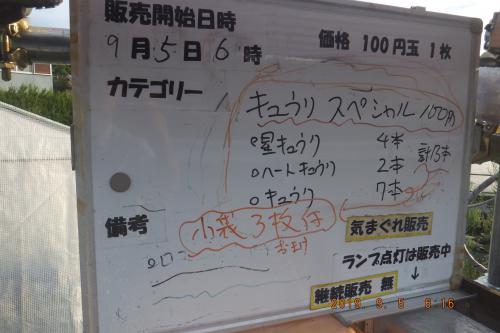 販売開始日時
9月5日6時
価格 100円玉 1枚
カテゴリー
キュウリ スペシャル 100円
星キュウリ 4本
ハートキュウリ 2本 計13本
キュウリ 7本
備考
小袋3枚付
おまけ
気まぐれ販売
ランプ点灯は販売中
↓
継続販売 無
2019. 9. 5 6:16